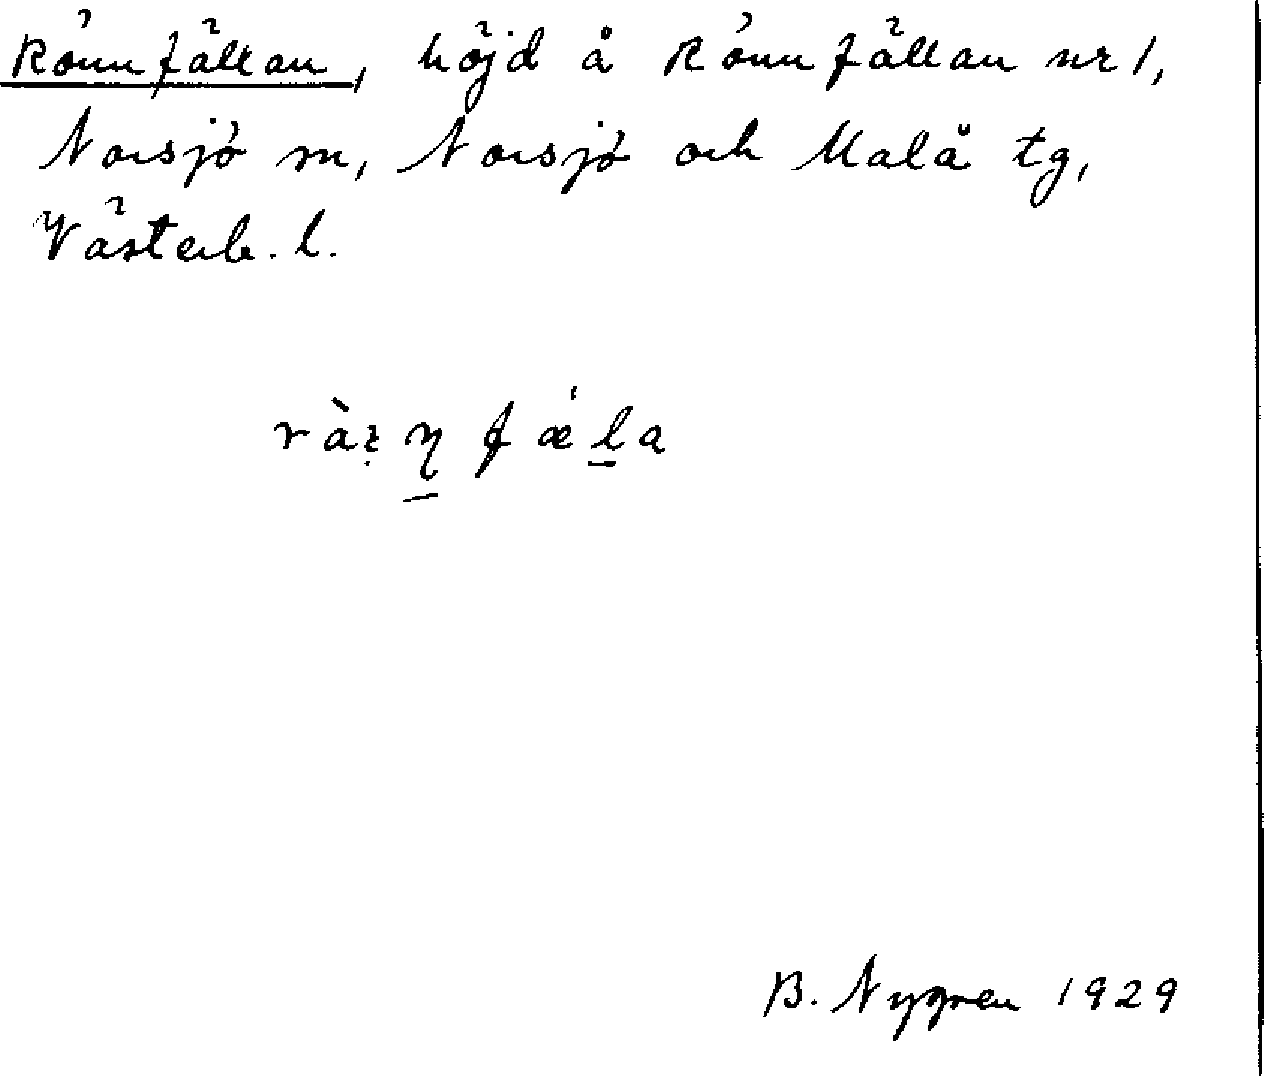 Rönnfällan, höjd å Rönnfällan nr 1,
Norsjö sn, Norsjö och Malå tg,
Västerb. l.
B. Nygren 1929